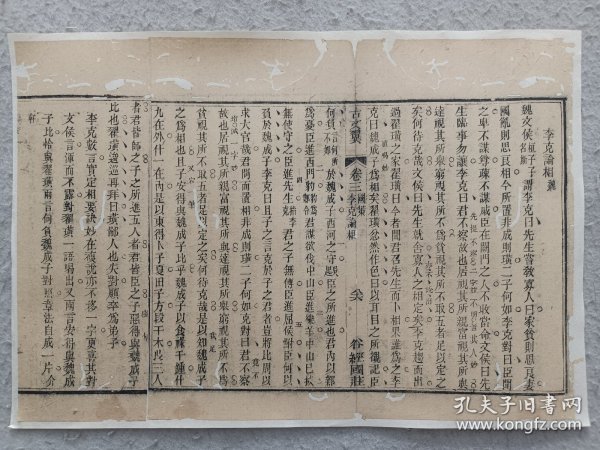 李克論相 魏
魏文侯 桓子子名斯 謂李克曰先生嘗教寡人曰家貧則思良妻
國亂則思良相今所置非成則璜二子何如李克對曰臣聞
之卑不謀尊疎不謀戚臣在闕門之人不敢當命文侯曰先
生臨事勿讓李克曰君不察故也居視其所親富視其所與
達視其所舉窮視其所不為貧視其所不取五者足以定之
矣何待克哉文侯曰先生就舍寡人之相定矣李克趨而出
過翟璜之家翟璜曰今者聞君召先生而卜相果誰為之李
克曰魏成子為相矣翟璜忿然作色曰以耳目之所覩記臣
古文翼 卷三 國策 李克論相 谷經國莊
何負於魏成子西河之守臣之所進也君內以鄴
為憂臣進西門豹君謀欲伐中山臣進樂羊中山已拔
無使守之臣進先生君之子無傅臣進屈侯鮒臣何以
負於魏成子李克曰且子之言克於子之君者豈將比周以
求大官哉君問而置相非成則璜二子何如克對曰君不察
故也居視其所親富視其所與達視其所舉窮視其所不為
貧視其所不取五者足以定之矣何待克哉是以知魏成子
之為相也且子安得與魏成子比乎魏成子以食祿千鍾什
九在外什一在內是以東得卜子夏田子方段干木此三人
者君皆師之子之所進五人者君皆臣之子惡得與魏成子
比也翟璜逡巡再拜曰璜鄙人也失對願卒為弟子
李克數言實定相要訣妙在複說亦不移一字更喜其對
文侯言渾而不露對翟璜一語喝出又兩言安得與魏成
子比恰與翟璜兩言何負魏成子對照章法自成一片介
軒
孔夫子旧书网
www.kongfz.com